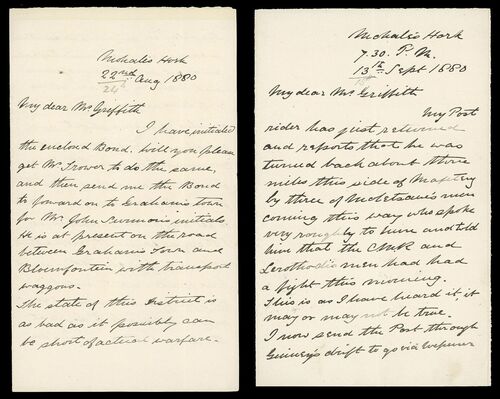 Mohali's Hoek
22nd Aug 1880
24
My dear Mr Griffith
I have initialed
the enclosed Bond. Will you please
get Mr Trower to do the same,
and then send me the Bond
to forward on to Graham's town
for Mr. John Surmon's initials
He is at present on the road
between Graham's Town and
Bloemfontein with transport
waggons.
The state of this District is
as bad as it possibly can
be short of actual warfare.
Mohali's Hoek
7.30. P.M.
13th Sept 1880
My dear Mr Griffith
My Post
rider has just returned
and reports that he was
turned back about three
miles this side of Mafeteng
by three of Moletsane's men
coming this way who spoke
very roughly to him and told
him that the CMR and
Lerothodi's men had had
a fight this morning.
This is as I have heard it, it
may or may not be true.
I now send the Post through
drift to go via Wepener